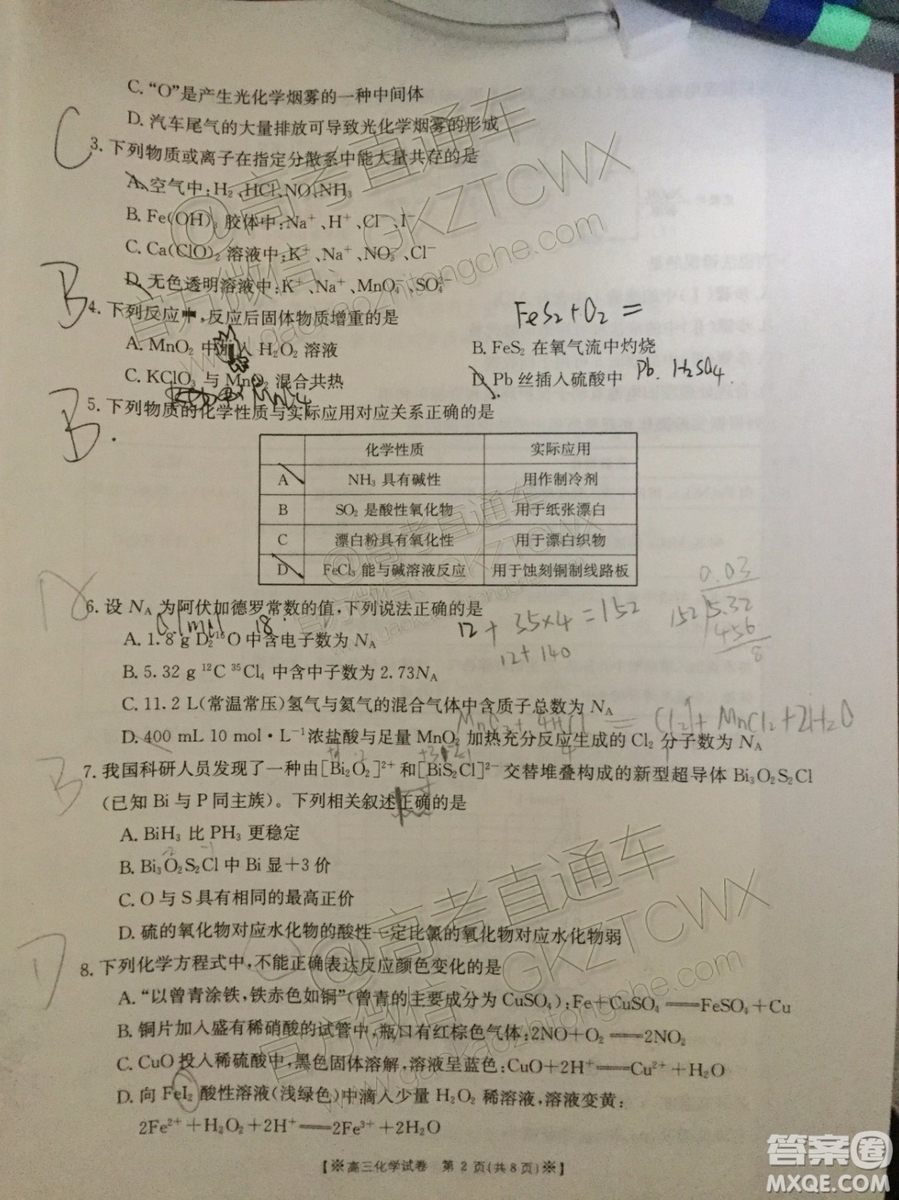 C.“O”是产生光化学烟雾的一种中间体
D. 汽车尾气的大量排放可导致光化学烟雾的形成
C
3. 下列物质或离子在指定分散系中能大量共存的是
A. 空气中:H₂、HCl、NO、NH₃
B. Fe(OH)₃ 胶体中:Na⁺、H⁺、Cl⁻、I⁻
C. Ca(ClO)₂ 溶液中:K⁺、Na⁺、NO₃⁻、Cl⁻
D. 无色透明溶液中:K⁺、Na⁺、MnO₄⁻、SO₄²⁻
B
4. 下列反应中,反应后固体物质增重的是
FeS₂+O₂ =
A. MnO₂ 中加入 H₂O₂ 溶液 B. FeS₂ 在氧气流中灼烧
C. KClO₃ 与 MnO₂ 混合共热 D. Pb 丝插入硫酸中 Pb. H₂SO₄.
B.
5. 下列物质的化学性质与实际应用对应关系正确的是
化学性质 实际应用
A NH₃ 具有碱性 用作制冷剂
B SO₂ 是酸性氧化物 用于纸张漂白
C 漂白粉具有氧化性 用于漂白织物
D FeCl₃ 能与碱溶液反应 用于蚀刻铜制线路板
0.03
6. 设 N_A 为阿伏加德罗常数的值,下列说法正确的是
12 + 35×4 = 152
152 5.32
456
8
12+140
0.1mol 18.
A. 1.8 g D₂¹⁶O 中含电子数为 N_A
B. 5.32 g ¹²C ³⁵Cl₄ 中含中子数为 2.73N_A
C. 11.2 L(常温常压)氢气与氦气的混合气体中含质子总数为 N_A
MnO₂+4HCl = Cl₂↑+MnCl₂+2H₂O
D. 400 mL 10 mol·L⁻¹浓盐酸与足量 MnO₂ 加热充分反应生成的 Cl₂ 分子数为 N_A
B
7. 我国科研人员发现了一种由[Bi₂O₂]²⁺和[BiS₂Cl]²⁻交替堆叠构成的新型超导体 Bi₃O₂S₂Cl
(已知 Bi 与 P 同主族)。下列相关叙述正确的是
A. BiH₃ 比 PH₃ 更稳定
B. Bi₃O₂S₂Cl 中 Bi 显+3 价
C. O 与 S 具有相同的最高正价
D. 硫的氧化物对应水化物的酸性一定比氯的氧化物对应水化物弱
D
8. 下列化学方程式中,不能正确表达反应颜色变化的是
A.“以曾青涂铁,铁赤色如铜”(曾青的主要成分为 CuSO₄):Fe+CuSO₄══FeSO₄+Cu
B. 铜片加入盛有稀硝酸的试管中,瓶口有红棕色气体:2NO+O₂══2NO₂
C. CuO 投入稀硫酸中,黑色固体溶解,溶液呈蓝色:CuO+2H⁺══Cu²⁺+H₂O
D. 向 FeI₂ 酸性溶液(浅绿色)中滴入少量 H₂O₂ 稀溶液,溶液变黄:
2Fe²⁺+H₂O₂+2H⁺══2Fe³⁺+2H₂O
【※高三化学试卷 第 2 页(共 8 页)※】
@高考直通车
官方微信:GKZTCWX
www.gaozhitongche.com
@高考直通车
官方微信:GKZTCWX
www.gaozhitongche.com
答案圈
MXQE.COM